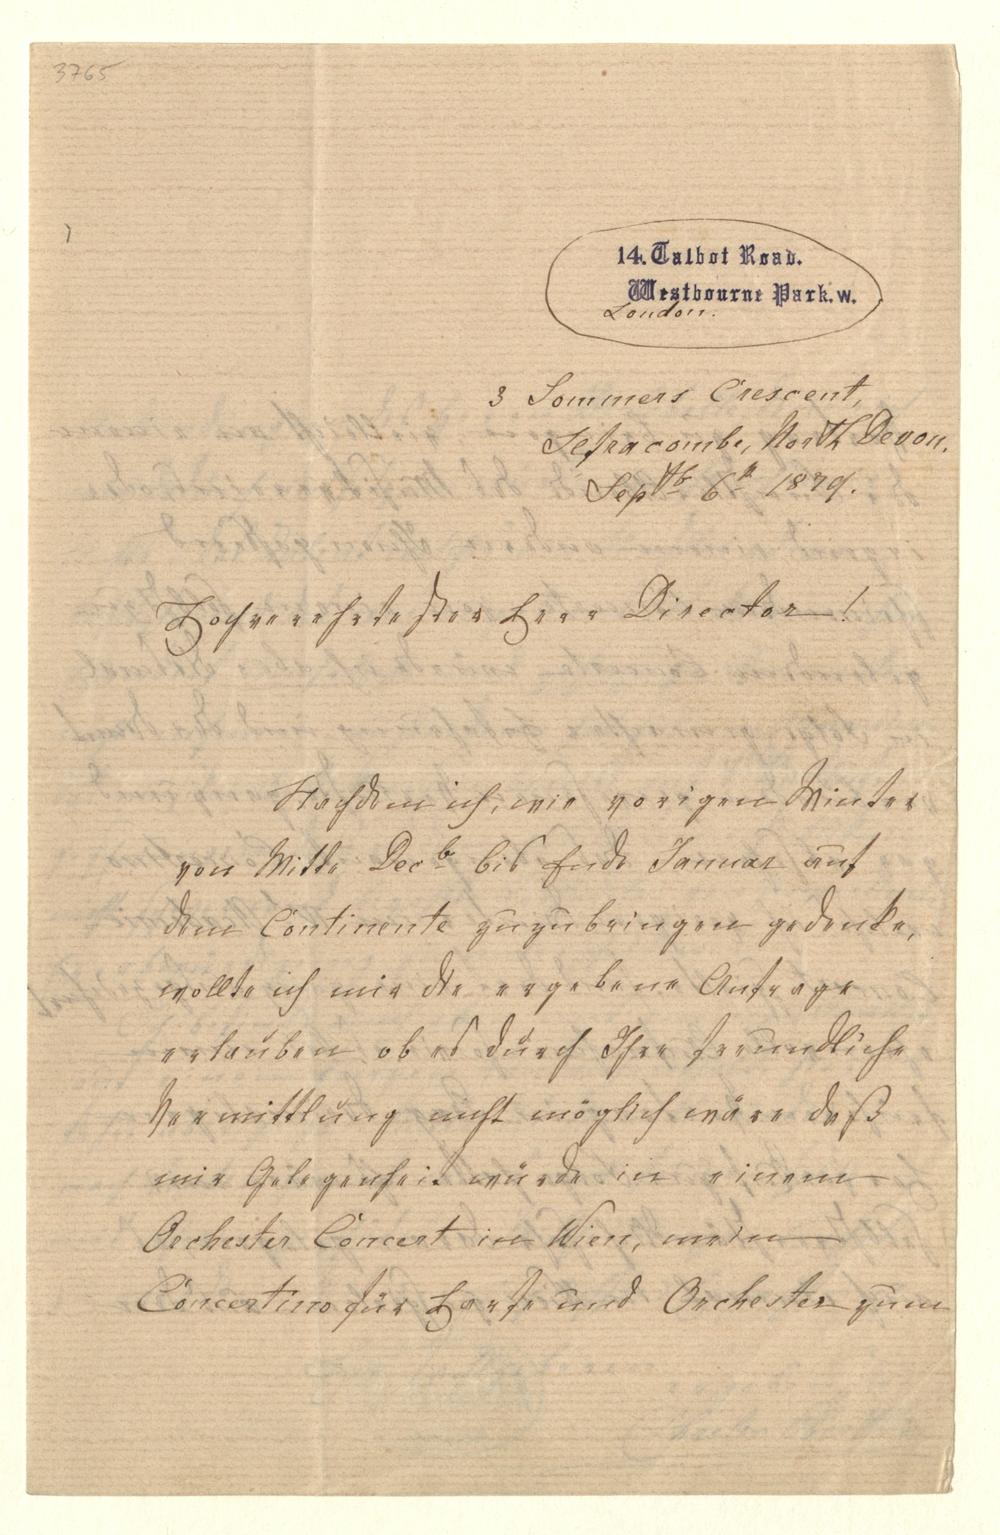 3765
14. Talbot Road.
Westbourne Park. W.
London.
3 Sommers Crescent,
Ilfracombe, North Devon.
Septb 6th 1879.
Hochverehrtester Herr Director!
Nachdem ich, wie vorigen Winter
von Mitte Decb bis Ende Januar auf
dem Continente zuzubringen gedenke,
wollte ich mir die ergebene Anfrage
erlauben ob es durch Ihre freundliche
Vermittlung nicht möglich wäre daß
mir Gelegenheit würde in einem
Orchester Concert in Wien, mein
Concertino für Harfe und Orchester zum